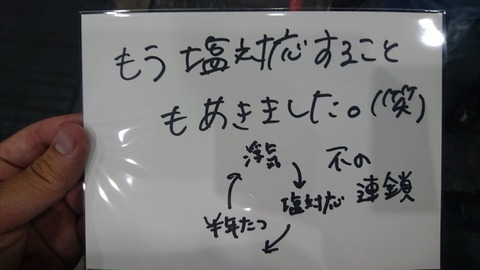 もう塩対応すること
もあきました。(笑)
浮気
不の
塩対応
連鎖
半年たつ